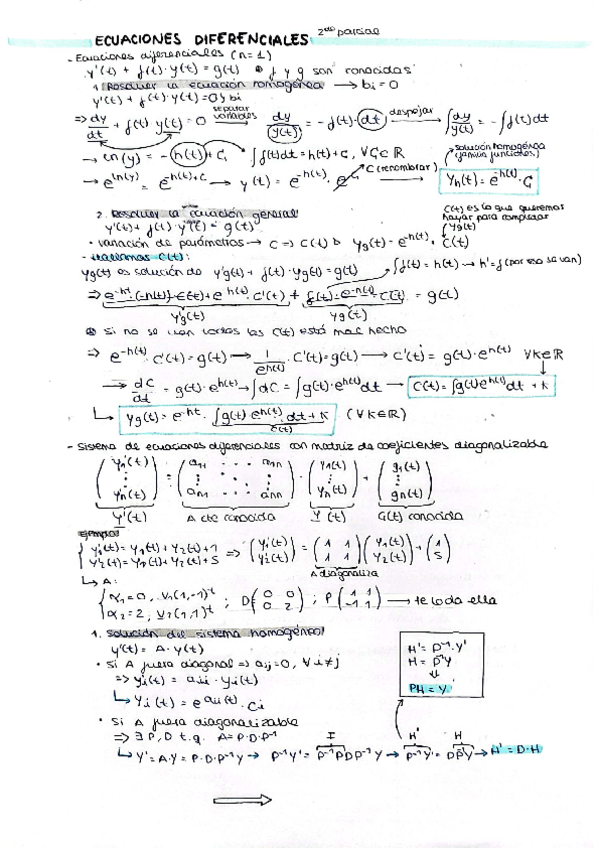 ECUACIONES DIFERENCIALES 2do parcial
- Ecuaciones diferenciales (n=1)
y'(t) + f(t)·y(t) = g(t) f y g son conocidas
1. Resolver la ecuación homogénea → bi = 0
y'(t) + f(t)·y(t) = 0 y bi
⇒ dy/dt + f(t)·y(t) = 0 separar variables → dy/y(t) = -f(t)·dt despejar → ∫dy/y(t) = -∫f(t)dt
→ ln(y) = -h(t) + C, ∫f(t)dt = h(t) + C, ∀C∈ℝ solución homogénea (familia funciones)
→ e^ln(y) = e^-h(t)+C → y(t) = e^-h(t)·e^C C (recombrar) → Yh(t) = e^-h(t)·C
2. Resolver la ecuación general
y'(t) + f(t)·y(t) = g(t)
C(t) es lo que queremos hayar para completar Yg(t)
· variación de parámetros → C => C(t) Yg(t) = e^-h(t)·C(t)
- Hallamos C(t):
yg(t) es solución de y'g(t) + f(t)·yg(t) = g(t) ∫f(t) = h(t) → h' = f (por eso se van)
⇒ e^-ht·(-h'(t))·C(t) + e^-h(t)·C'(t) + f(t)·e^-h(t)·C(t) = g(t)
y'g(t) yg(t)
si no se van todas las C(t) está mal hecho
⇒ e^-h(t)·C'(t) = g(t) → 1/e^h(t)·C'(t) = g(t) → C'(t) = g(t)·e^h(t) ∀k∈ℝ
→ dC/dt = g(t)·e^h(t) → ∫dC = ∫g(t)·e^h(t)dt → C(t) = ∫g(t)e^h(t)dt + k
Yg(t) = e^-ht·∫g(t)·e^h(t)·dt + k (∀k∈ℝ)
C(t)
- Sistema de ecuaciones diferenciales con matriz de coeficientes diagonalizable
(y1'(t) ⋮ yn'(t)) = (a11 ... ann ⋮ an1 ... ann)·(y1(t) ⋮ yn(t)) + (g1(t) ⋮ gn(t))
Y'(t) A cte conocida Y(t) G(t) conocida
Ejemplo:
{ y1'(t) = y1(t) + y2(t) + 1
y2'(t) = y1(t) + y2(t) + 5 ⇒ (y1'(t) y2'(t)) = (1 1 1 1)(y1(t) y2(t)) + (1 5)
A diagonaliza
↳ A:
{ α1 = 0, v1(1,-1)^t
α2 = 2, v2(1,1)^t ; D(0 0 0 2) ; P(1 1 -1 1) → te lo da ella
1. Solución del sistema homogéneo
y'(t) = A·y(t)
· Si A fuera diagonal ⇒ aij = 0, ∀i≠j
⇒ y'i(t) = aii·yi(t)
↳ yi(t) = e^aii(t)·Ci
H' = P^-1·Y'
H = P^-1Y
⇓
PH = Y
· Si A fuera diagonalizable
⇒ ∃ P, D t.q. A = P·D·P^-1
I H' H
↳ Y' = A·Y = P·D·P^-1Y → P^-1Y' = P^-1PDP^-1Y → P^-1Y' = DP^-1Y → H' = D·H